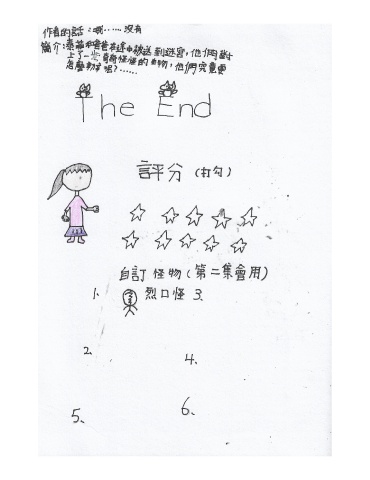 作者的話：哦……沒有
簡介：在途中被送到迷宮，他們對
上了一些奇奇怪怪的生物，他們究竟要
怎麼辦呢？……
The End
評分（打勾）
自訂怪物（第二集會用）
1、烈口怪 3、
2、
4、
5、
6、